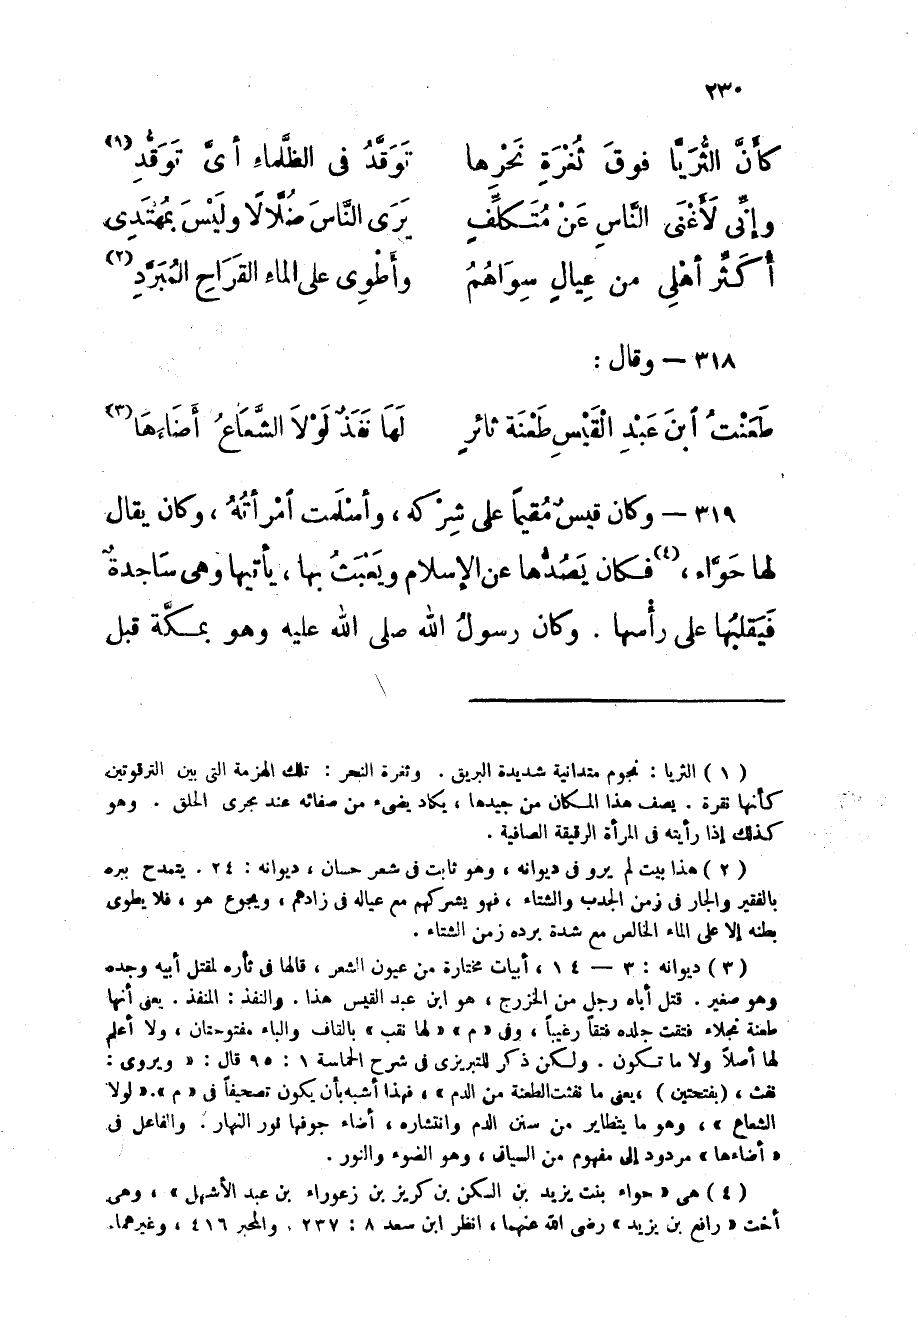 ٢٣٠
كأَنَّ الثُّرَيَّا فوقَ ثُغْرَةِ نَحْرِها تَوَقَّدُ فى الظَّلماءِ أىَّ تَوَقُّدِ(١)
وإنِّى لَأَغْنَى النَّاسِ عَنْ مُتَكلِّفٍ يَرَى النَّاسَ ضُلَّالًا ولَيْسَ بمُهْتَدِى
أُكَثِّر أهْلِى من عِيالٍ سِوَاهُمُ وأَطْوِى على الماء القرَاحِ المُبَرَّدِ(٢)
٣١٨ — وقال :
طَعَنْتُ ٱبنَ عَبْدِ الْقَيْسِ طَعْنَة ثائرٍ لَهَا نَفَذٌ لَوْلاَ الشَّعَاعُ أَضَاءهَا(٣)
٣١٩ — وكان قيسٌ مُقيماً على شِرْكه ، وأسْلمت ٱمْرأتُهُ ، وكان يقال
لها حَوَّاء ،(٤) فكان يَصُدُّها عن الإسلام ويَعْبَثُ بها ، يأتيها وهى سَاجدةٌ
فَيَقلبُها على رأْسها . وكان رسولُ الله صلى الله عليه وهو بمكَّة قبل
(١) الثريا : نجوم متدانية شديدة البريق . وثغرة النحر : تلك الهزمة التى بين الترقوتين
كأنها نقرة . يصف هذا المكان من جيدها ، يكاد يضىء من صفائه عند مجرى الحلق . وهو
كذلك إذا رأيته فى المرأة الرقيقة الصافية .
(٢) هذا بيت لم يرو فى ديوانه ، وهو ثابت فى شعر حسان ، ديوانه : ٢٤ . يتمدح ببره
بالفقير والجار فى زمن الجدب والشتاء ، فهو يشركهم مع عياله فى زادهم ، ويجوع هو ، فلا يطوى
بطنه إلا على الماء الخالص مع شدة برده زمن الشتاء .
(٣) ديوانه : ٣ — ١٤ ، أبيات مختارة من عيون الشعر ، قالها فى ثأره لمقتل أبيه وجده
وهو صغير . قتل أباه رجل من الخزرج ، هو ابن عبد القيس هذا . والنفذ : المنفذ . يعنى أنها
طعنة نجلاء فتقت جلده فتقاً رغيباً ، وفى « م » « لها نقب » بالقاف والباء مفتوحتان ، ولا أعلم
لها أصلاً ولا ما تكون . ولكن ذكر للتبريزى فى شرح الحماسة ١ : ٩٥ قال : « ويروى :
نفث ، (بفتحتين) ، يعنى ما نفثت الطعنة من الدم » ، فهذا أشبه بأن يكون تصحيفاً فى « م ». « لولا
الشعاع » ، وهو ما يتطاير من سنن الدم وانتشاره ، أضاء جوفها نور النهار . والفاعل فى
« أضاءها » مردود إلى مفهوم من السياق ، وهو الضوء والنور .
(٤) هى « حواء بنت يزيد بن السكن بن كريز بن زعوراء بن عبد الأشهل » ، وهى
أخت « رافع بن يزيد » رضى الله عنهما ، انظر ابن سعد ٨ : ٢٣٧ . والمحبر ٤١٦ ، وغيرهما.